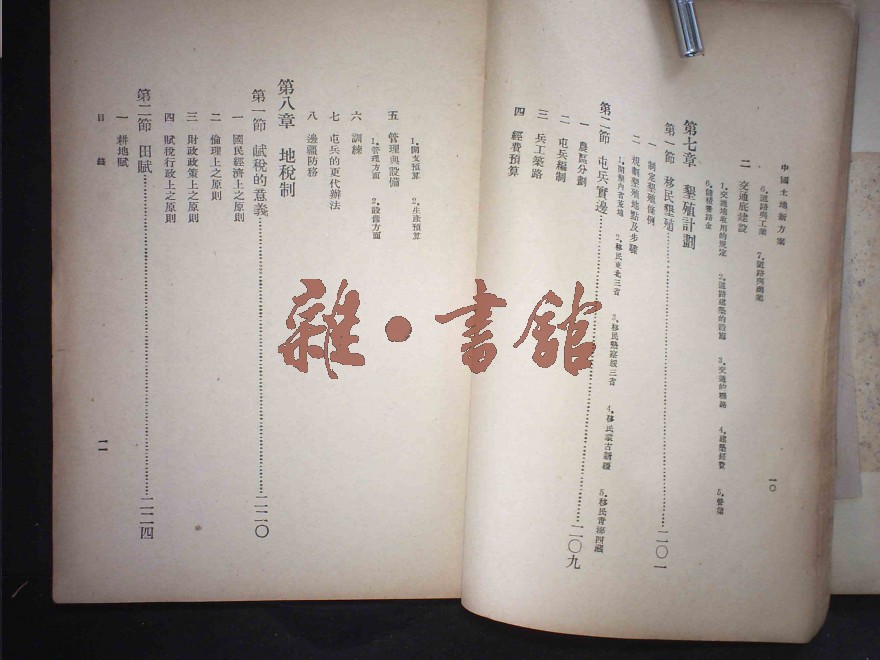 中國土地新方案
6.道路與工業 7.道路與商業
二 交通底建設
1.交通地收用的規定 2.道路建築的設施 3.交通的聯絡 4.建築經費 5.營業
6.儲積養路金
一〇
第七章 墾殖計劃
第一節 移民墾殖……二〇一
一 制定墾殖條例
二 規劃墾殖地點及步驟
1.開墾內省荒地 2.移民東北三省 3.移民熱察綏三省 4.移民蒙古新疆 5.移民青海西藏
第二節 屯兵實邊……二〇九
一 農區分劃
二 屯兵編制
三 兵工築路
四 經費預算
1.開支預算 2.生產預算
五 管理與設備
1.管理方面 2.設備方面
六 訓練
七 屯兵的更代辦法
八 邊疆防務
第八章 地稅制
第一節 賦稅的意義……二二〇
一 國民經濟上之原則
二 倫理上之原則
三 財政政策上之原則
四 賦稅行政上之原則
第二節 田賦……二二四
一 耕地賦
目錄
一一
雜·書館